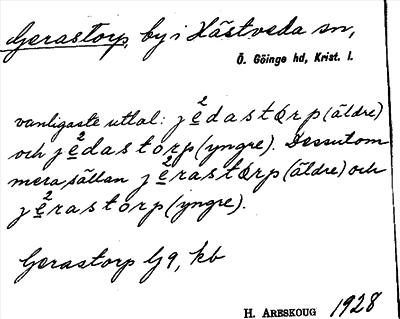 Gerastorp, by i Hästveda sn,
Ö. Göinge hd, Krist. l.
vanligaste uttal: je̲²dastorp (äldre)
och je̲²dastorp (yngre). Dessutom
mera sällan je̲²rastorp (äldre) och
je̲²rastorp (yngre).
Gerastorp GJ, kb
H. ARESKOUG 1928